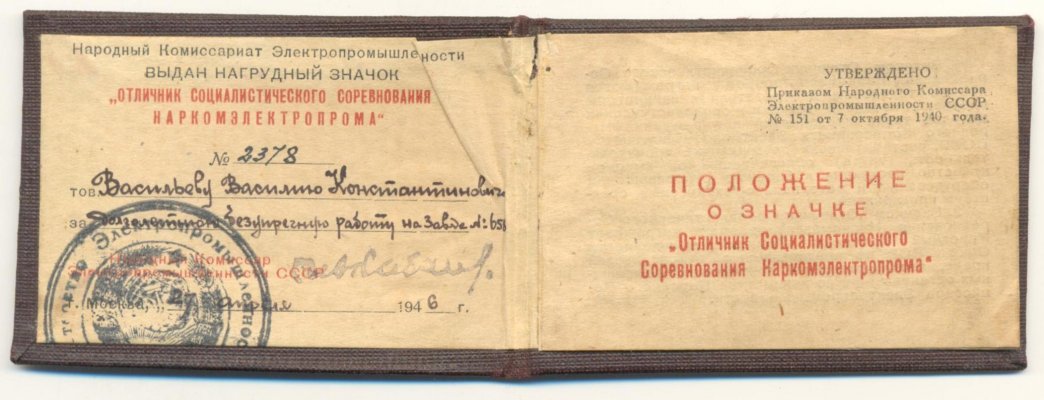 Народный Комиссариат Электропромышлености
ВЫДАН НАГРУДНЫЙ ЗНАЧОК
„ОТЛИЧНИК СОЦИАЛИСТИЧЕСКОГО СОРЕВНОВАНИЯ
НАРКОМЭЛЕКТРОПРОМА“
№ 2378
тов. Васильеву Василию Константинович
за долголетнюю безупречную работу на Завде № 658
Народный Комиссар
Электропромышленности СССР
г. Москва, „27 апреля 1946 г.
Электропромышленнос
УТВЕРЖДЕНО
Приказом Народного Комиссара
Электропромышленности СССР
№ 151 от 7 октября 1940 года.
ПОЛОЖЕНИЕ
О ЗНАЧКЕ
„Отличник Социалистического
Соревнования Наркомэлектропрома“